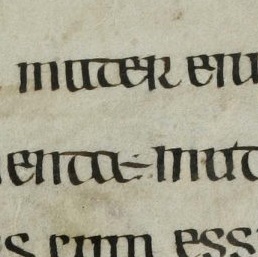 mater eiu
enta inut
s cum ess